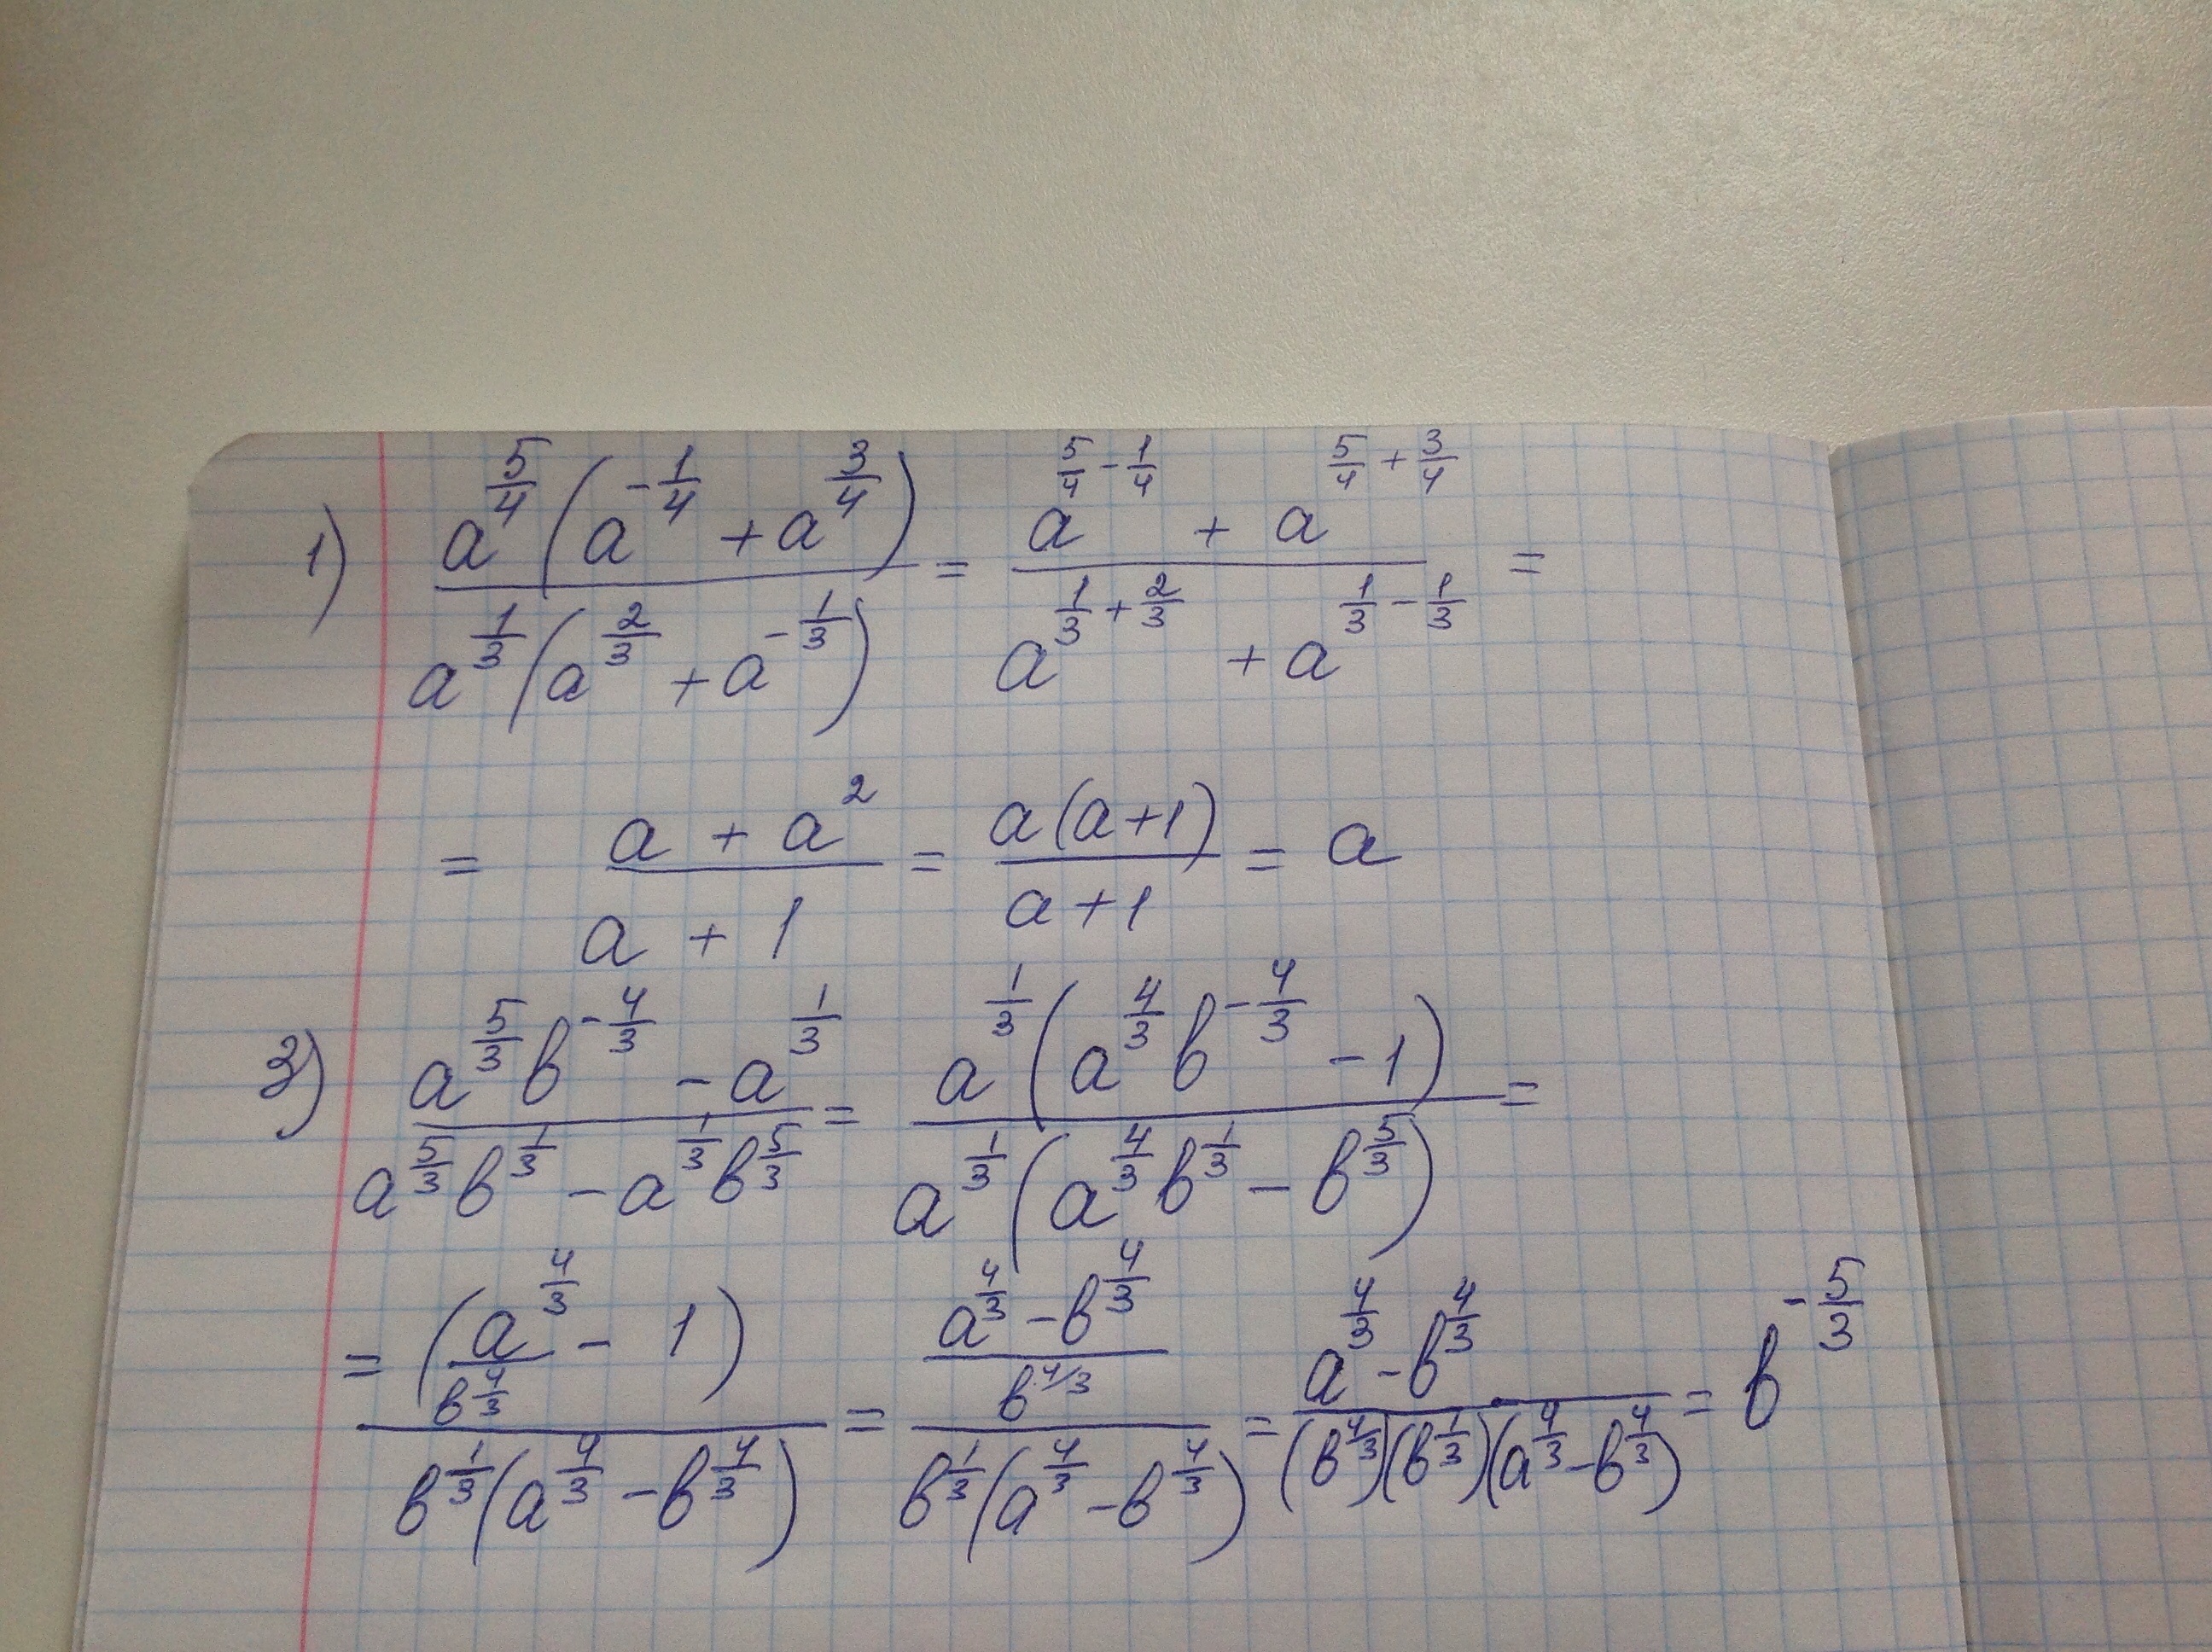 1) \frac{a^{\frac{5}{4}}(a^{-\frac{1}{4}} + a^{\frac{3}{4}})}{a^{\frac{1}{3}}(a^{\frac{2}{3}} + a^{-\frac{1}{3}})} = \frac{a^{\frac{5}{4} - \frac{1}{4}} + a^{\frac{5}{4} + \frac{3}{4}}}{a^{\frac{1}{3} + \frac{2}{3}} + a^{\frac{1}{3} - \frac{1}{3}}} =
= \frac{a + a^2}{a + 1} = \frac{a(a+1)}{a+1} = a
3) \frac{a^{\frac{5}{3}} b^{-\frac{4}{3}} - a^{\frac{1}{3}}}{a^{\frac{5}{3}} b^{\frac{1}{3}} - a^{\frac{1}{3}} b^{\frac{5}{3}}} = \frac{a^{\frac{1}{3}}(a^{\frac{4}{3}} b^{-\frac{4}{3}} - 1)}{a^{\frac{1}{3}}(a^{\frac{4}{3}} b^{\frac{1}{3}} - b^{\frac{5}{3}})} =
= \frac{(\frac{a^{\frac{4}{3}}}{b^{\frac{4}{3}}} - 1)}{b^{\frac{1}{3}}(a^{\frac{4}{3}} - b^{\frac{4}{3}})} = \frac{\frac{a^{\frac{4}{3}} - b^{\frac{4}{3}}}{b^{4/3}}}{b^{\frac{1}{3}}(a^{\frac{4}{3}} - b^{\frac{4}{3}})} = \frac{a^{\frac{4}{3}} - b^{\frac{4}{3}}}{(b^{\frac{4}{3}})(b^{\frac{1}{3}})(a^{\frac{4}{3}} - b^{\frac{4}{3}})} = b^{-\frac{5}{3}}